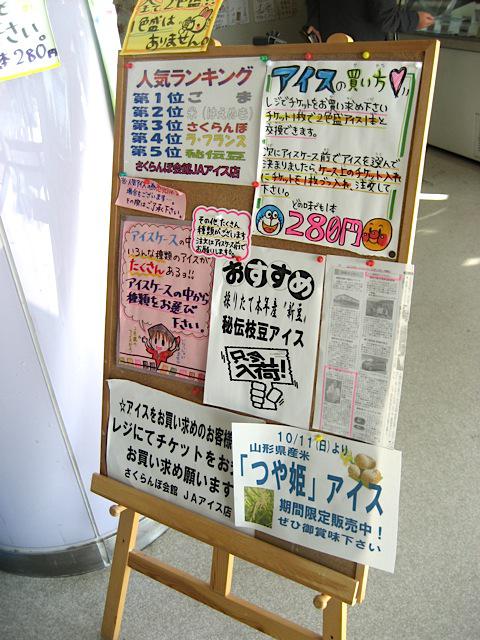 280円
全て2色盛!!
1色盛は
ありません。
人気ランキング
第1位 ごま
第2位 米(はえぬき)
第3位 さくらんぼ
第4位 ラ・フランス
第5位 秘伝豆
さくらんぼ会館、JAアイス店
アイスの買い方♡
レジでチケットをお買い求め下さい
チケット1枚で2色盛アイス1本と
交換できます。
次にアイスケース前でアイスを選んで
決まりましたら、ケース上のチケット入れ
にチケットを1枚づつ入れ、注文して
下さい。
どの味でも1本
280円
その他、たくさん
種類がございます
注文はアイスケース前で
お願いしますね。
アイスケースの中
いろんな種類のアイスが
たくさんあるョ!!
アイスケースの中から
種類をお選び
下さい。
おすすめ
採りたて本年産「新豆」
秘伝枝豆アイス
只今
入荷!
☆アイスをお買い求めのお客様
レジにてチケットをお
お買い求め願います
さくらんぼ会館 JAアイス店
10/11(日)より
山形県産米
「つや姫」アイス
期間限定販売中!
ぜひ御賞味下さい